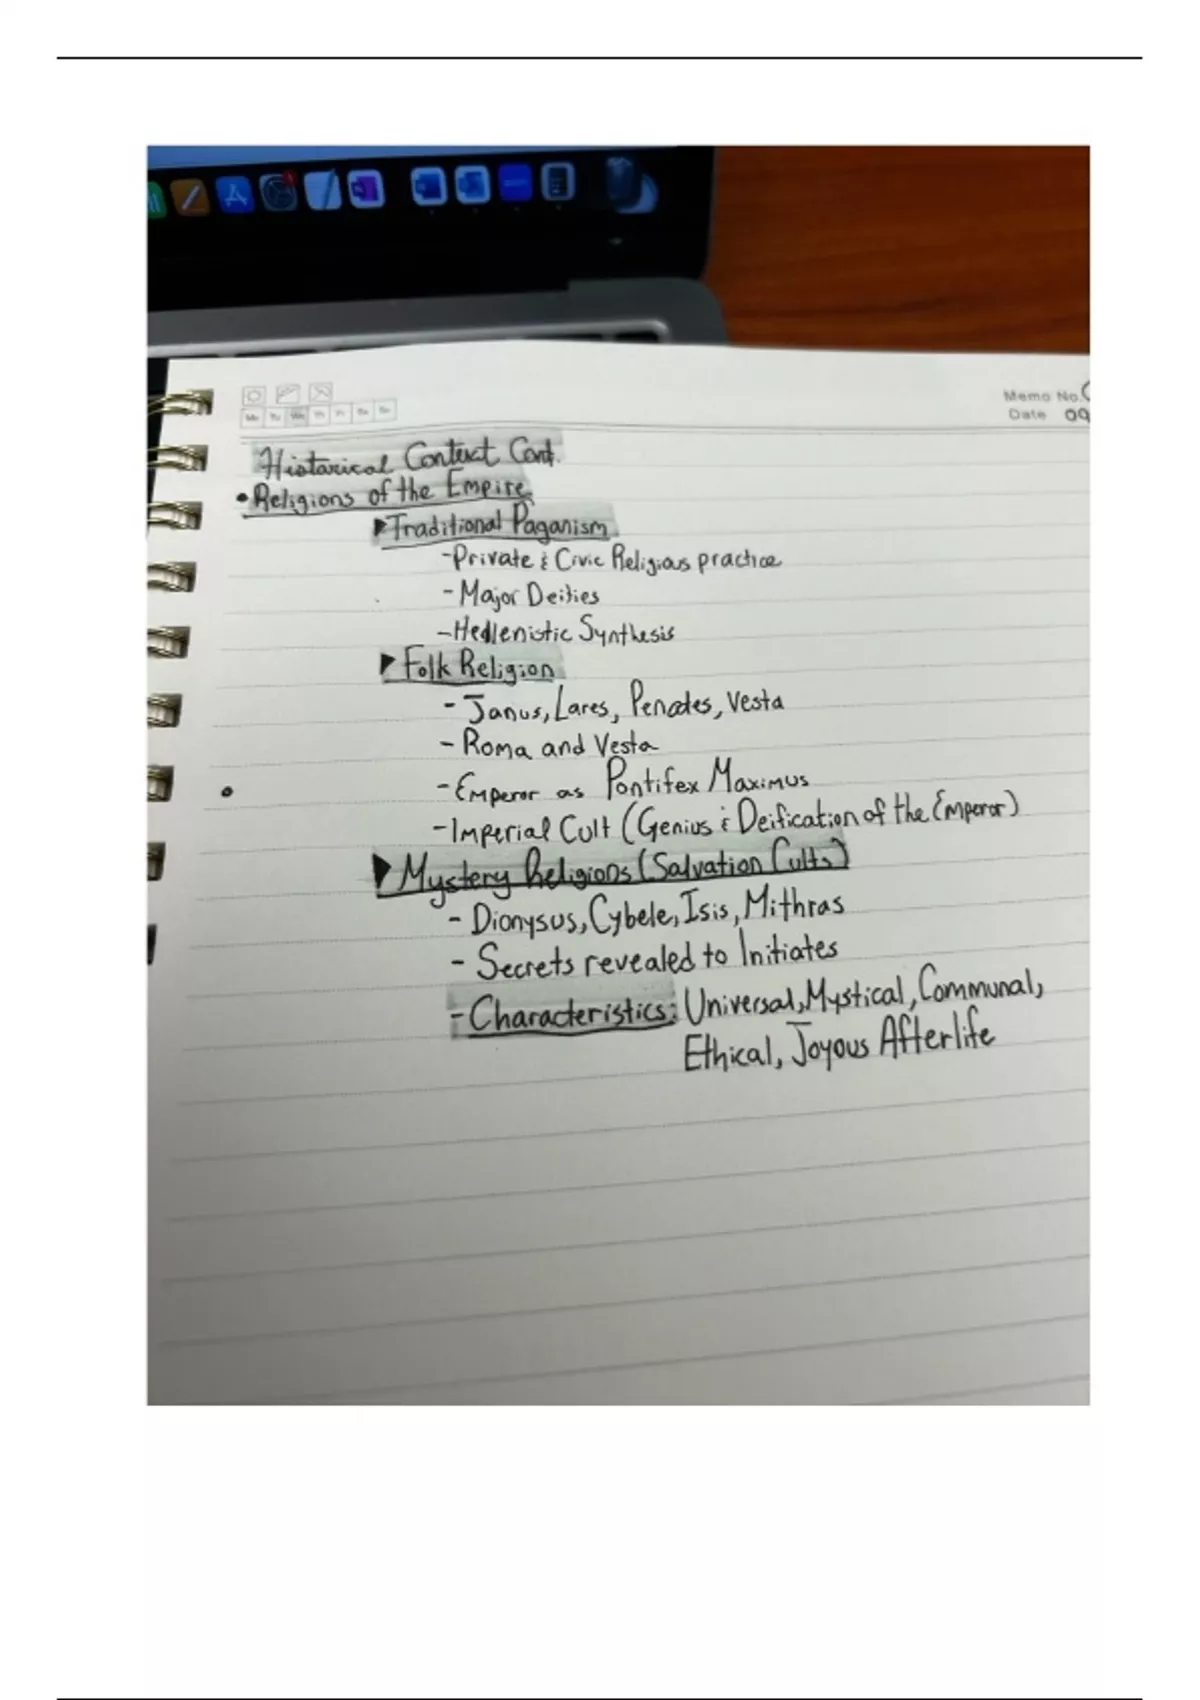 Memo No.
Date 09
Mo Tu We Th Fr Sa Su
Historical Context Cont.
• Religions of the Empire
▶ Traditional Paganism
- Private & Civic Religious practice
- Major Deities
- Hedlenistic Synthesis
▶ Folk Religion
- Janus, Lares, Penates, Vesta
- Roma and Vesta
- Emperor as Pontifex Maximus
- Imperial Cult (Genius & Deification of the Emperor)
▶ Mystery Religions (Salvation Cults)
- Dionysus, Cybele, Isis, Mithras
- Secrets revealed to Initiates
- Characteristics: Universal, Mystical, Communal,
Ethical, Joyous Afterlife